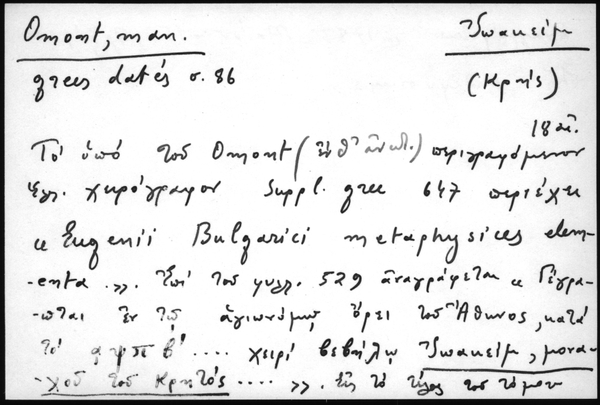 Omont, man.
Ἰωακεὶμ
grecs datés σ. 86
(Κρής)
18 αἰ.
Τὸ ὑπὸ τοῦ Omont (ἔνθ' ἀνωτ.) περιγραφόμενον
ἑλλ. χειρόγραφον Suppl. grec 647 περιέχει
« Eugenii Bulgarici metaphysices elem-
-enta ». Ἐπὶ τοῦ φυλλ. 529 ἀναγράφεται « Γέγρα-
-πται ἐν τῷ ἁγιωνύμῳ ὄρει τοῦ Ἄθωνος, κατὰ
τὸ αψπβ' .... χειρὶ βεβήλῳ Ἰωακεὶμ, μονα-
-χοῦ τοῦ Κρητός .... ». Εἰς τὸ τέλος τοῦ τόμου